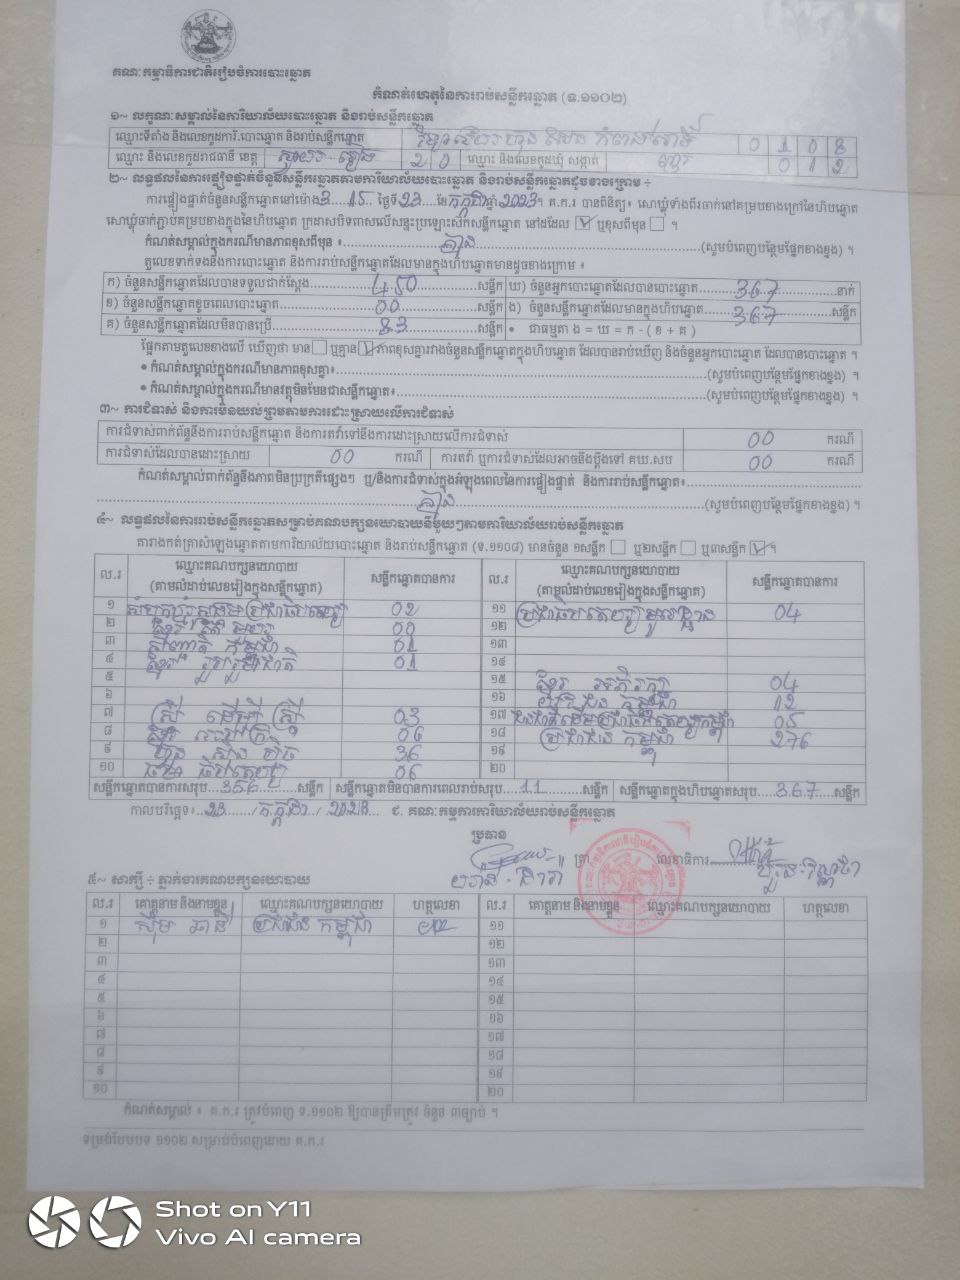 គណៈកម្មាធិការជាតិរៀបចំការបោះឆ្នោត
កំណត់ហេតុនៃការរាប់សន្លឹកឆ្នោត (ទ.១១០២)
១~ លក្ខណៈសម្គាល់នៃការិយាល័យបោះឆ្នោត និងរាប់សន្លឹកឆ្នោត
ឈ្មោះទីតាំង និងលេខកូដការិ.បោះឆ្នោត និងរាប់សន្លឹកឆ្នោត 0 1 0 8
ឈ្មោះ និងលេខកូដរាជធានី ខេត្ត ស្វាយរៀង 2 0 ឈ្មោះ និងលេខកូដឃុំ សង្កាត់ 0 1 2
២~ លទ្ធផលនៃការផ្ទៀងផ្ទាត់ចំនួនសន្លឹកឆ្នោតតាមការិយាល័យបោះឆ្នោត និងរាប់សន្លឹកឆ្នោតដូចខាងក្រោម ÷
ការផ្ទៀងផ្ទាត់ចំនួនសន្លឹកឆ្នោតនៅម៉ោង 3 15 ថ្ងៃទី 23 ខែ កក្កដា ឆ្នាំ 2023។ គ.ក.រ បានពិនិត្យ៖ សោឃ្លុំទាំងពីរចាក់នៅគម្របខាងក្រៅនៃហិបឆ្នោត
សោឃ្លុំចាក់ភ្ជាប់គម្របខាងក្នុងនៃហិបឆ្នោត ក្រដាសបិទពាសលើសន្ទះប្រឡោះស៊កសន្លឹកឆ្នោត នៅដដែល ☑ ឬខុសពីមុន ☐ ។
កំណត់សម្គាល់ក្នុងករណីមានភាពខុសពីមុន ៖ គ្មាន (សូមបំពេញបន្ថែមផ្នែកខាងខ្នង) ។
តួលេខទាក់ទងនឹងការបោះឆ្នោត និងការរាប់សន្លឹកឆ្នោតដែលមានក្នុងហិបឆ្នោតមានដូចខាងក្រោម ៖
ក) ចំនួនសន្លឹកឆ្នោតដែលបានទទួលជាក់ស្ដែង 450 សន្លឹក ឃ) ចំនួនអ្នកបោះឆ្នោតដែលបានបោះឆ្នោត 367 នាក់
ខ) ចំនួនសន្លឹកឆ្នោតខូចពេលបោះឆ្នោត 00 សន្លឹក ង) ចំនួនសន្លឹកឆ្នោតដែលមានក្នុងហិបឆ្នោត 367 សន្លឹក
គ) ចំនួនសន្លឹកឆ្នោតដែលមិនបានប្រើ 83 សន្លឹក • ជាធម្មតា ង = ឃ = ក - ( ខ + គ )
ផ្អែកតាមតួលេខខាងលើ ឃើញថា មាន ☐ ឬគ្មាន ☑ ភាពខុសគ្នារវាងចំនួនសន្លឹកឆ្នោតក្នុងហិបឆ្នោត ដែលបានរាប់ឃើញ និងចំនួនអ្នកបោះឆ្នោត ដែលបានបោះឆ្នោត ។
• កំណត់សម្គាល់ក្នុងករណីមានភាពខុសគ្នា៖ (សូមបំពេញបន្ថែមផ្នែកខាងខ្នង) ។
• កំណត់សម្គាល់ក្នុងករណីមានវត្ថុមិនមែនជាសន្លឹកឆ្នោត៖ (សូមបំពេញបន្ថែមផ្នែកខាងខ្នង) ។
៣~ ការជំទាស់ និងការមិនយល់ព្រមតាមការដោះស្រាយលើការជំទាស់
ការជំទាស់ពាក់ព័ន្ធនឹងការរាប់សន្លឹកឆ្នោត និងការតវ៉ាទៅនឹងការដោះស្រាយលើការជំទាស់ 00 ករណី
ការជំទាស់ដែលបានដោះស្រាយ 00 ករណី ការតវ៉ា ឬការជំទាស់ដែលអាចនឹងប្ដឹងទៅ គឃ.សប 00 ករណី
កំណត់សម្គាល់ពាក់ព័ន្ធនឹងភាពមិនប្រក្រតីផ្សេងៗ ឬ/និងការជំទាស់ក្នុងអំឡុងពេលនៃការផ្ទៀងផ្ទាត់ និងការរាប់សន្លឹកឆ្នោត៖
គ្មាន (សូមបំពេញបន្ថែមផ្នែកខាងខ្នង) ។
៤~ លទ្ធផលនៃការរាប់សន្លឹកឆ្នោតសម្រាប់គណបក្សនយោបាយនីមួយៗតាមការិយាល័យរាប់សន្លឹកឆ្នោត
តារាងកត់ត្រាសំឡេងឆ្នោតតាមការិយាល័យបោះឆ្នោត និងរាប់សន្លឹកឆ្នោត (ទ.១១០៨) មានចំនួន ១សន្លឹក ☐ ឬ២សន្លឹក ☐ ឬ៣សន្លឹក ☑ ។
ល.រ ឈ្មោះគណបក្សនយោបាយ (តាមលំដាប់លេខរៀងក្នុងសន្លឹកឆ្នោត) សន្លឹកឆ្នោតបានការ ល.រ ឈ្មោះគណបក្សនយោបាយ (តាមលំដាប់លេខរៀងក្នុងសន្លឹកឆ្នោត) សន្លឹកឆ្នោតបានការ
១ 02 ១១ 04
២ 00 ១២
៣ 01 ១៣
៤ ខ្មែរ រួបរួមជាតិ 01 ១៤
៥ ១៥ ខ្មែរ អភិរក្ស 04
៦ ១៦ កម្ពុជា 12
៧ ស្ត្រី ដើម្បី ស្ត្រី 03 ១៧ 05
៨ 06 ១៨ ប្រជាជន កម្ពុជា 276
៩ ហ៊្វុនស៊ិនប៉ិច 36 ១៩
១០ ធម្មាធិបតេយ្យ 06 ២០
សន្លឹកឆ្នោតបានការសរុប 356 សន្លឹក សន្លឹកឆ្នោតមិនបានការពេលរាប់សរុប 11 សន្លឹក សន្លឹកឆ្នោតក្នុងហិបឆ្នោតសរុប 367 សន្លឹក
កាលបរិច្ឆេទ៖ 23 / កក្កដា / 2023 ជ. គណៈកម្មការការិយាល័យរាប់សន្លឹកឆ្នោត
ប្រធាន
ត្រា លេខាធិការ
៥~ សាក្សី ÷ ភ្នាក់ងារគណបក្សនយោបាយ
ល.រ គោត្តនាម និងនាមខ្លួន ឈ្មោះគណបក្សនយោបាយ ហត្ថលេខា ល.រ គោត្តនាម និងនាមខ្លួន ឈ្មោះគណបក្សនយោបាយ ហត្ថលេខា
១ ប្រជាជន កម្ពុជា ១១
២ ១២
៣ ១៣
៤ ១៤
៥ ១៥
៦ ១៦
៧ ១៧
៨ ១៨
៩ ១៩
១០ ២០
កំណត់សម្គាល់ ៖ គ.ក.រ ត្រូវបំពេញ ទ.១១០២ ឱ្យបានត្រឹមត្រូវ ចំនួន ៣ច្បាប់ ។
ទម្រង់បែបបទ ១១០២ សម្រាប់បំពេញដោយ គ.ក.រ
Shot on Y11
Vivo AI camera